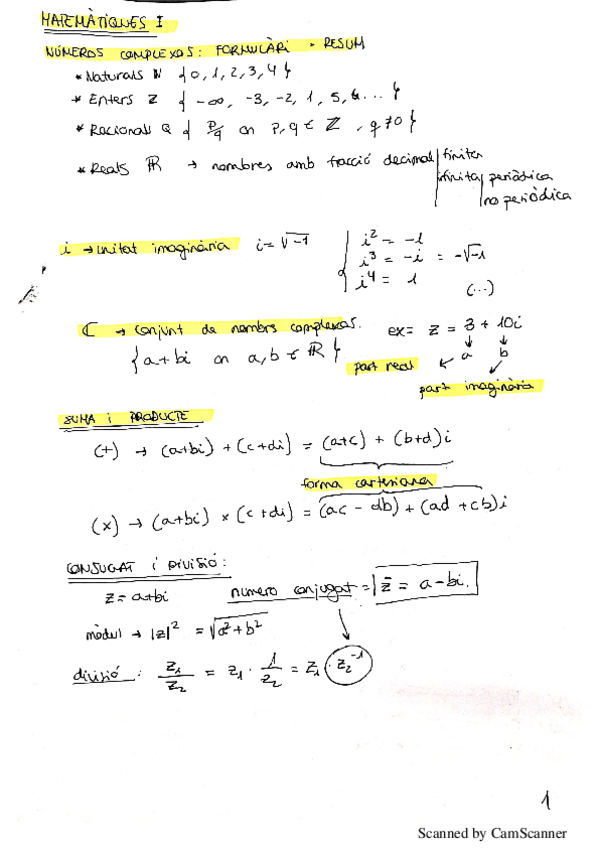 MATEMÀTIQUES I
NÚMEROS COMPLEXOS: FORMULÀRI - RESUM
* Naturals N {0, 1, 2, 3, 4}
* Enters Z { -∞, -3, -2, 1, 5, 6... }
* Racionals Q { p/q on p, q ∈ Z, q ≠ 0 }
* Reals ℝ → nombres amb fracció decimal | finites
infinita | periòdica
no periòdica
i → unitat imaginària i = √-1 { i² = -1
i³ = -i = -√-1
i⁴ = 1
(...)
ℂ → conjunt de nombrs complexos. ex= z = 3 + 10i
{ a + bi on a, b ∈ ℝ } part real a b
part imaginària
SUMA i PRODUCTE
(+) → (a+bi) + (c+di) = (a+c) + (b+d)i
forma cartesiana
(x) → (a+bi) × (c+di) = (ac - db) + (ad + cb)i
CONJUGAT i DIVISIÓ:
z = a+bi numero conjugat = z̄ = a - bi.
mòdul → |z|² = √a² + b²
divisió: z₁/z₂ = z₁ · 1/z₂ = z₁ · z₂⁻¹
1
Scanned by CamScanner